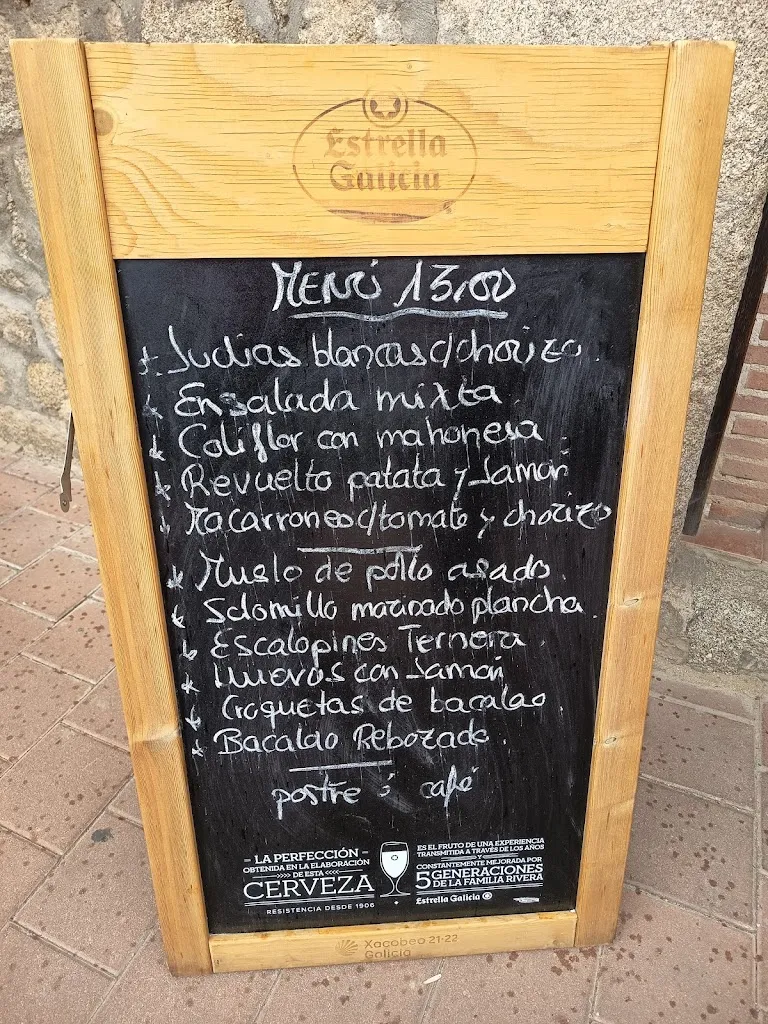 Estrella
Galicia
MENÚ 13,00
* Judias blancas c/chorizo.
* Ensalada mixta.
* Coliflor con mahonesa.
* Revuelto patata y Jamón
* Macarrones c/tomate y chorizo
* Muslo de pollo asado.
* Solomillo marinado plancha.
* Escalopines Ternera.
* Huevos con Jamón
* Croquetas de bacalao.
* Bacalao Rebozado.
postre ó café
- LA PERFECCIÓN -
OBTENIDA EN LA ELABORACIÓN
>>>> DE ESTA <<<<
CERVEZA
RESISTENCIA DESDE 1906
ES EL FRUTO DE UNA EXPERIENCIA
TRANSMITIDA A TRAVÉS DE LOS AÑOS
Y
CONSTANTEMENTE MEJORADA POR
5 GENERACIONES
DE LA FAMILIA RIVERA
Estrella Galicia
Xacobeo 21·22
Galicia